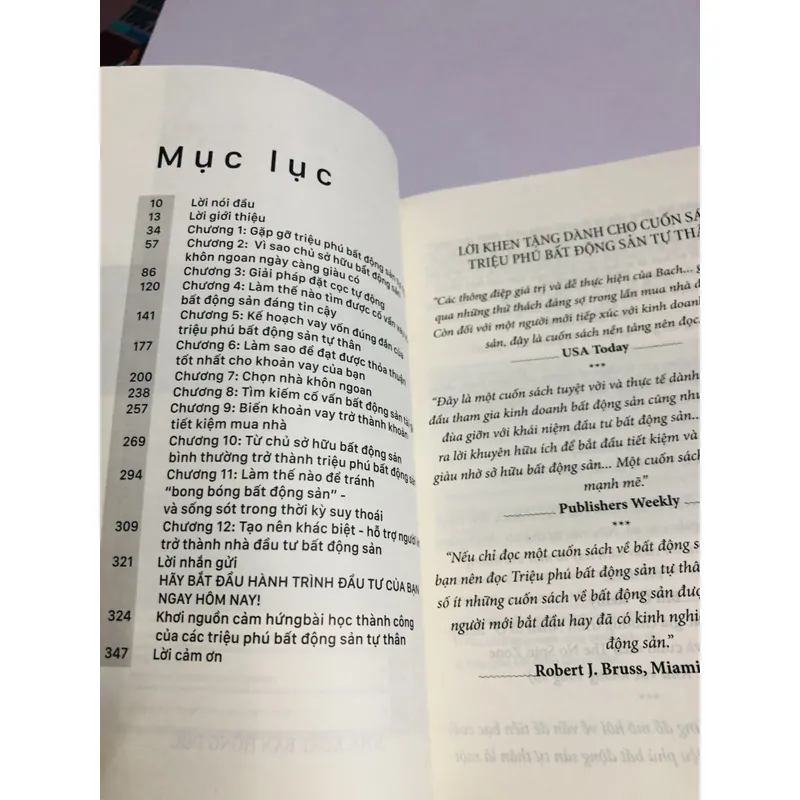 Mục lục
10 Lời nói đầu
13 Lời giới thiệu
34 Chương 1: Gặp gỡ triệu phú bất động sản
57 Chương 2: Vì sao chủ sở hữu bất động sản
khôn ngoan ngày càng giàu có
86 Chương 3: Giải pháp đặt cọc tự động
120 Chương 4: Làm thế nào tìm được cố vấn
bất động sản đáng tin cậy
141 Chương 5: Kế hoạch vay vốn đúng đắn của
triệu phú bất động sản tự thân
177 Chương 6: Làm sao để đạt được thỏa thuận
tốt nhất cho khoản vay của bạn
200 Chương 7: Chọn nhà khôn ngoan
238 Chương 8: Tìm kiếm cố vấn bất động sản
257 Chương 9: Biến khoản vay trở thành khoản
tiết kiệm mua nhà
269 Chương 10: Từ chủ sở hữu bất động sản
bình thường trở thành triệu phú bất động sản
294 Chương 11: Làm thế nào để tránh
"bong bóng bất động sản" -
và sống sót trong thời kỳ suy thoái
309 Chương 12: Tạo nên khác biệt - hỗ trợ người
trở thành nhà đầu tư bất động sản
321 Lời nhắn gửi
HÃY BẮT ĐẦU HÀNH TRÌNH ĐẦU TƯ CỦA BẠN
NGAY HÔM NAY!
324 Khơi nguồn cảm hứngbài học thành công
của các triệu phú bất động sản tự thân
347 Lời cảm ơn
LỜI KHEN TẶNG DÀNH CHO CUỐN
TRIỆU PHÚ BẤT ĐỘNG SẢN TỰ
"Các thông điệp giá trị và dễ thực hiện của Bach...
qua những thử thách đáng sợ trong lần mua nhà
Còn đối với một người mới tiếp xúc với kinh doanh
sản, đây là cuốn sách nền tảng nên đọc
USA Today
***
"Đây là một cuốn sách tuyệt vời và thực tế dành
đầu tham gia kinh doanh bất động sản cũng như
đùa giỡn với khái niệm đầu tư bất động sản...
ra lời khuyên hữu ích để bắt đầu tiết kiệm và
giàu nhờ sở hữu bất động sản... Một cuốn sách
mạnh mẽ."
Publishers Weekly
***
"Nếu chỉ đọc một cuốn sách về bất động
bạn nên đọc Triệu phú bất động sản tự thân
số ít những cuốn sách về bất động sản
người mới bắt đầu hay đã có kinh
động sản."
Robert J. Bruss, Miami